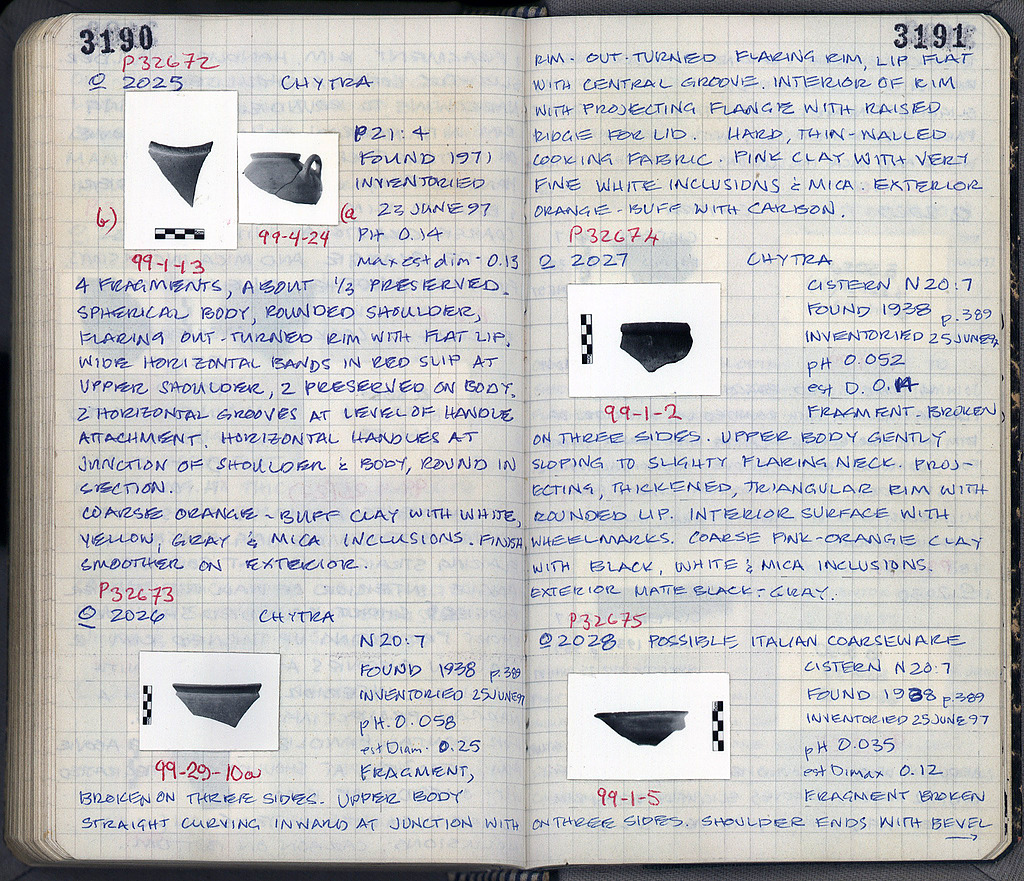 3190
P32672
O 2025 CHYTRA
P21:4
FOUND 1971
INVENTORIED
23 JUNE 97
PH 0.14
max est dim - 0.13
(b)
(a
99-4-24
99-1-13
4 FRAGMENTS, ABOUT 1/3 PRESERVED.
SPHERICAL BODY, ROUNDED SHOULDER,
FLARING OUT-TURNED RIM WITH FLAT LIP.
WIDE HORIZONTAL BANDS IN RED SLIP AT
UPPER SHOULDER, 2 PRESERVED ON BODY.
2 HORIZONTAL GROOVES AT LEVEL OF HANDLE
ATTACHMENT. HORIZONTAL HANDLES AT
JUNCTION OF SHOULDER & BODY, ROUND IN
SECTION.
COARSE ORANGE-BUFF CLAY WITH WHITE,
YELLOW, GRAY & MICA INCLUSIONS. FINISH
SMOOTHER ON EXTERIOR.
P32673
O 2026 CHYTRA
N20:7
FOUND 1938 p.389
INVENTORIED 25JUNE97
pH. 0.058
est Diam. 0.25
FRAGMENT,
99-29-10a
BROKEN ON THREE SIDES. UPPER BODY
STRAIGHT CURVING INWARD AT JUNCTION WITH
3191
RIM. OUT-TURNED FLARING RIM, LIP FLAT
WITH CENTRAL GROOVE. INTERIOR OF RIM
WITH PROJECTING FLANGE WITH RAISED
RIDGE FOR LID. HARD, THIN-WALLED
COOKING FABRIC. PINK CLAY WITH VERY
FINE WHITE INCLUSIONS & MICA. EXTERIOR
ORANGE-BUFF WITH CARBON.
P32674
O 2027 CHYTRA
CISTERN N20:7
FOUND 1938 p.389
INVENTORIED 25JUNE97
pH 0.052
est D. 0.14
FRAGMENT-BROKEN
99-1-2
ON THREE SIDES. UPPER BODY GENTLY
SLOPING TO SLIGHTY FLARING NECK. PROJ-
ECTING, THICKENED, TRIANGULAR RIM WITH
ROUNDED LIP. INTERIOR SURFACE WITH
WHEELMARKS. COARSE PINK-ORANGE CLAY
WITH BLACK, WHITE & MICA INCLUSIONS.
EXTERIOR MATTE BLACK-GRAY.
P32675
O 2028 POSSIBLE ITALIAN COARSEWARE
CISTERN N20:7
FOUND 1938 p.389
INVENTORIED 25JUNE97
pH 0.035
est Dimax 0.12
FRAGMENT BROKEN
99-1-5
ON THREE SIDES. SHOULDER ENDS WITH BEVEL